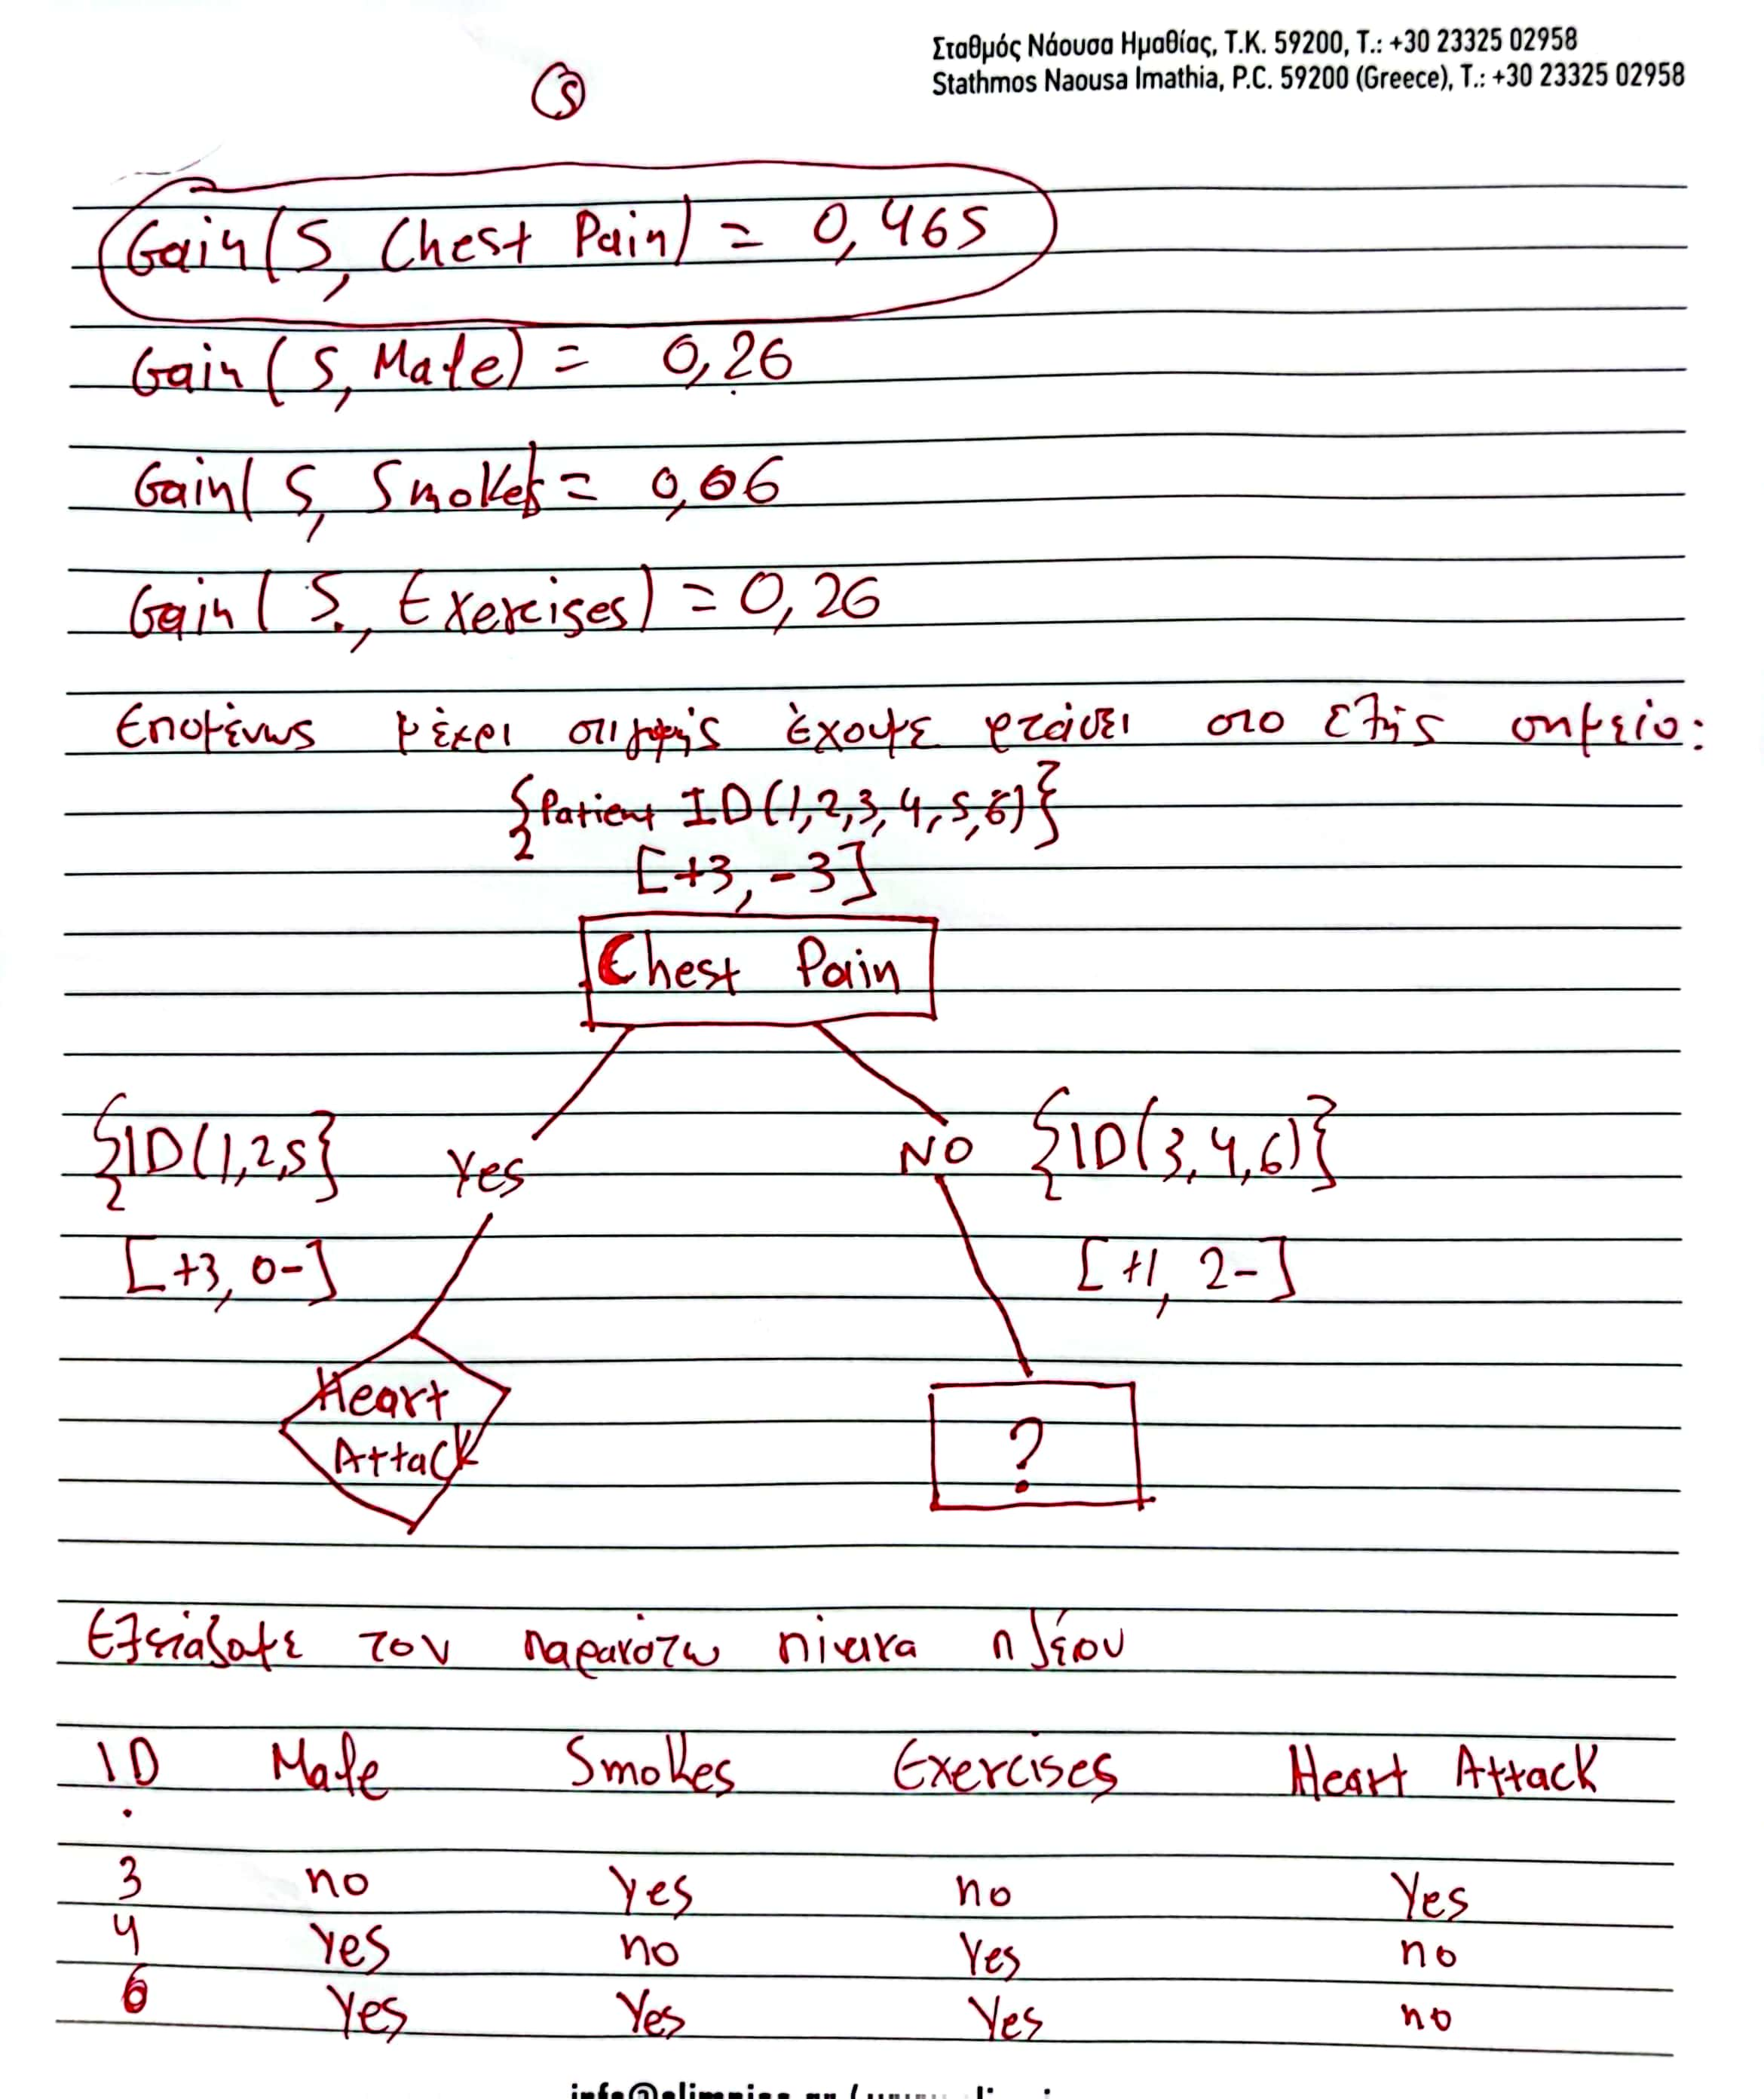 Σταθμός Νάουσα Ημαθίας, Τ.Κ. 59200, Τ.: +30 23325 02958
Stathmos Naousa Imathia, P.C. 59200 (Greece), T.: +30 23325 02958
5
Gain(S, Chest Pain) = 0,465
Gain(S, Male) = 0,26
Gain(S, Smokes = 0,06
Gain(S, Exercises) = 0,26
Επομένως μέχρι στιγμής έχουμε φτάσει στο εξής σημείο:
{Patient ID(1,2,3,4,5,6)}
[+3, -3]
Chest Pain
{ID(1,2,5} Yes NO {ID(3,4,6)}
[+3, 0-] [+1, 2-]
Heart
Attack ?
Εξετάζουμε τον παρακάτω πίνακα πλέον
ID Male Smokes Exercises Heart Attack
3 no Yes no Yes
4 Yes no Yes no
6 Yes Yes Yes no